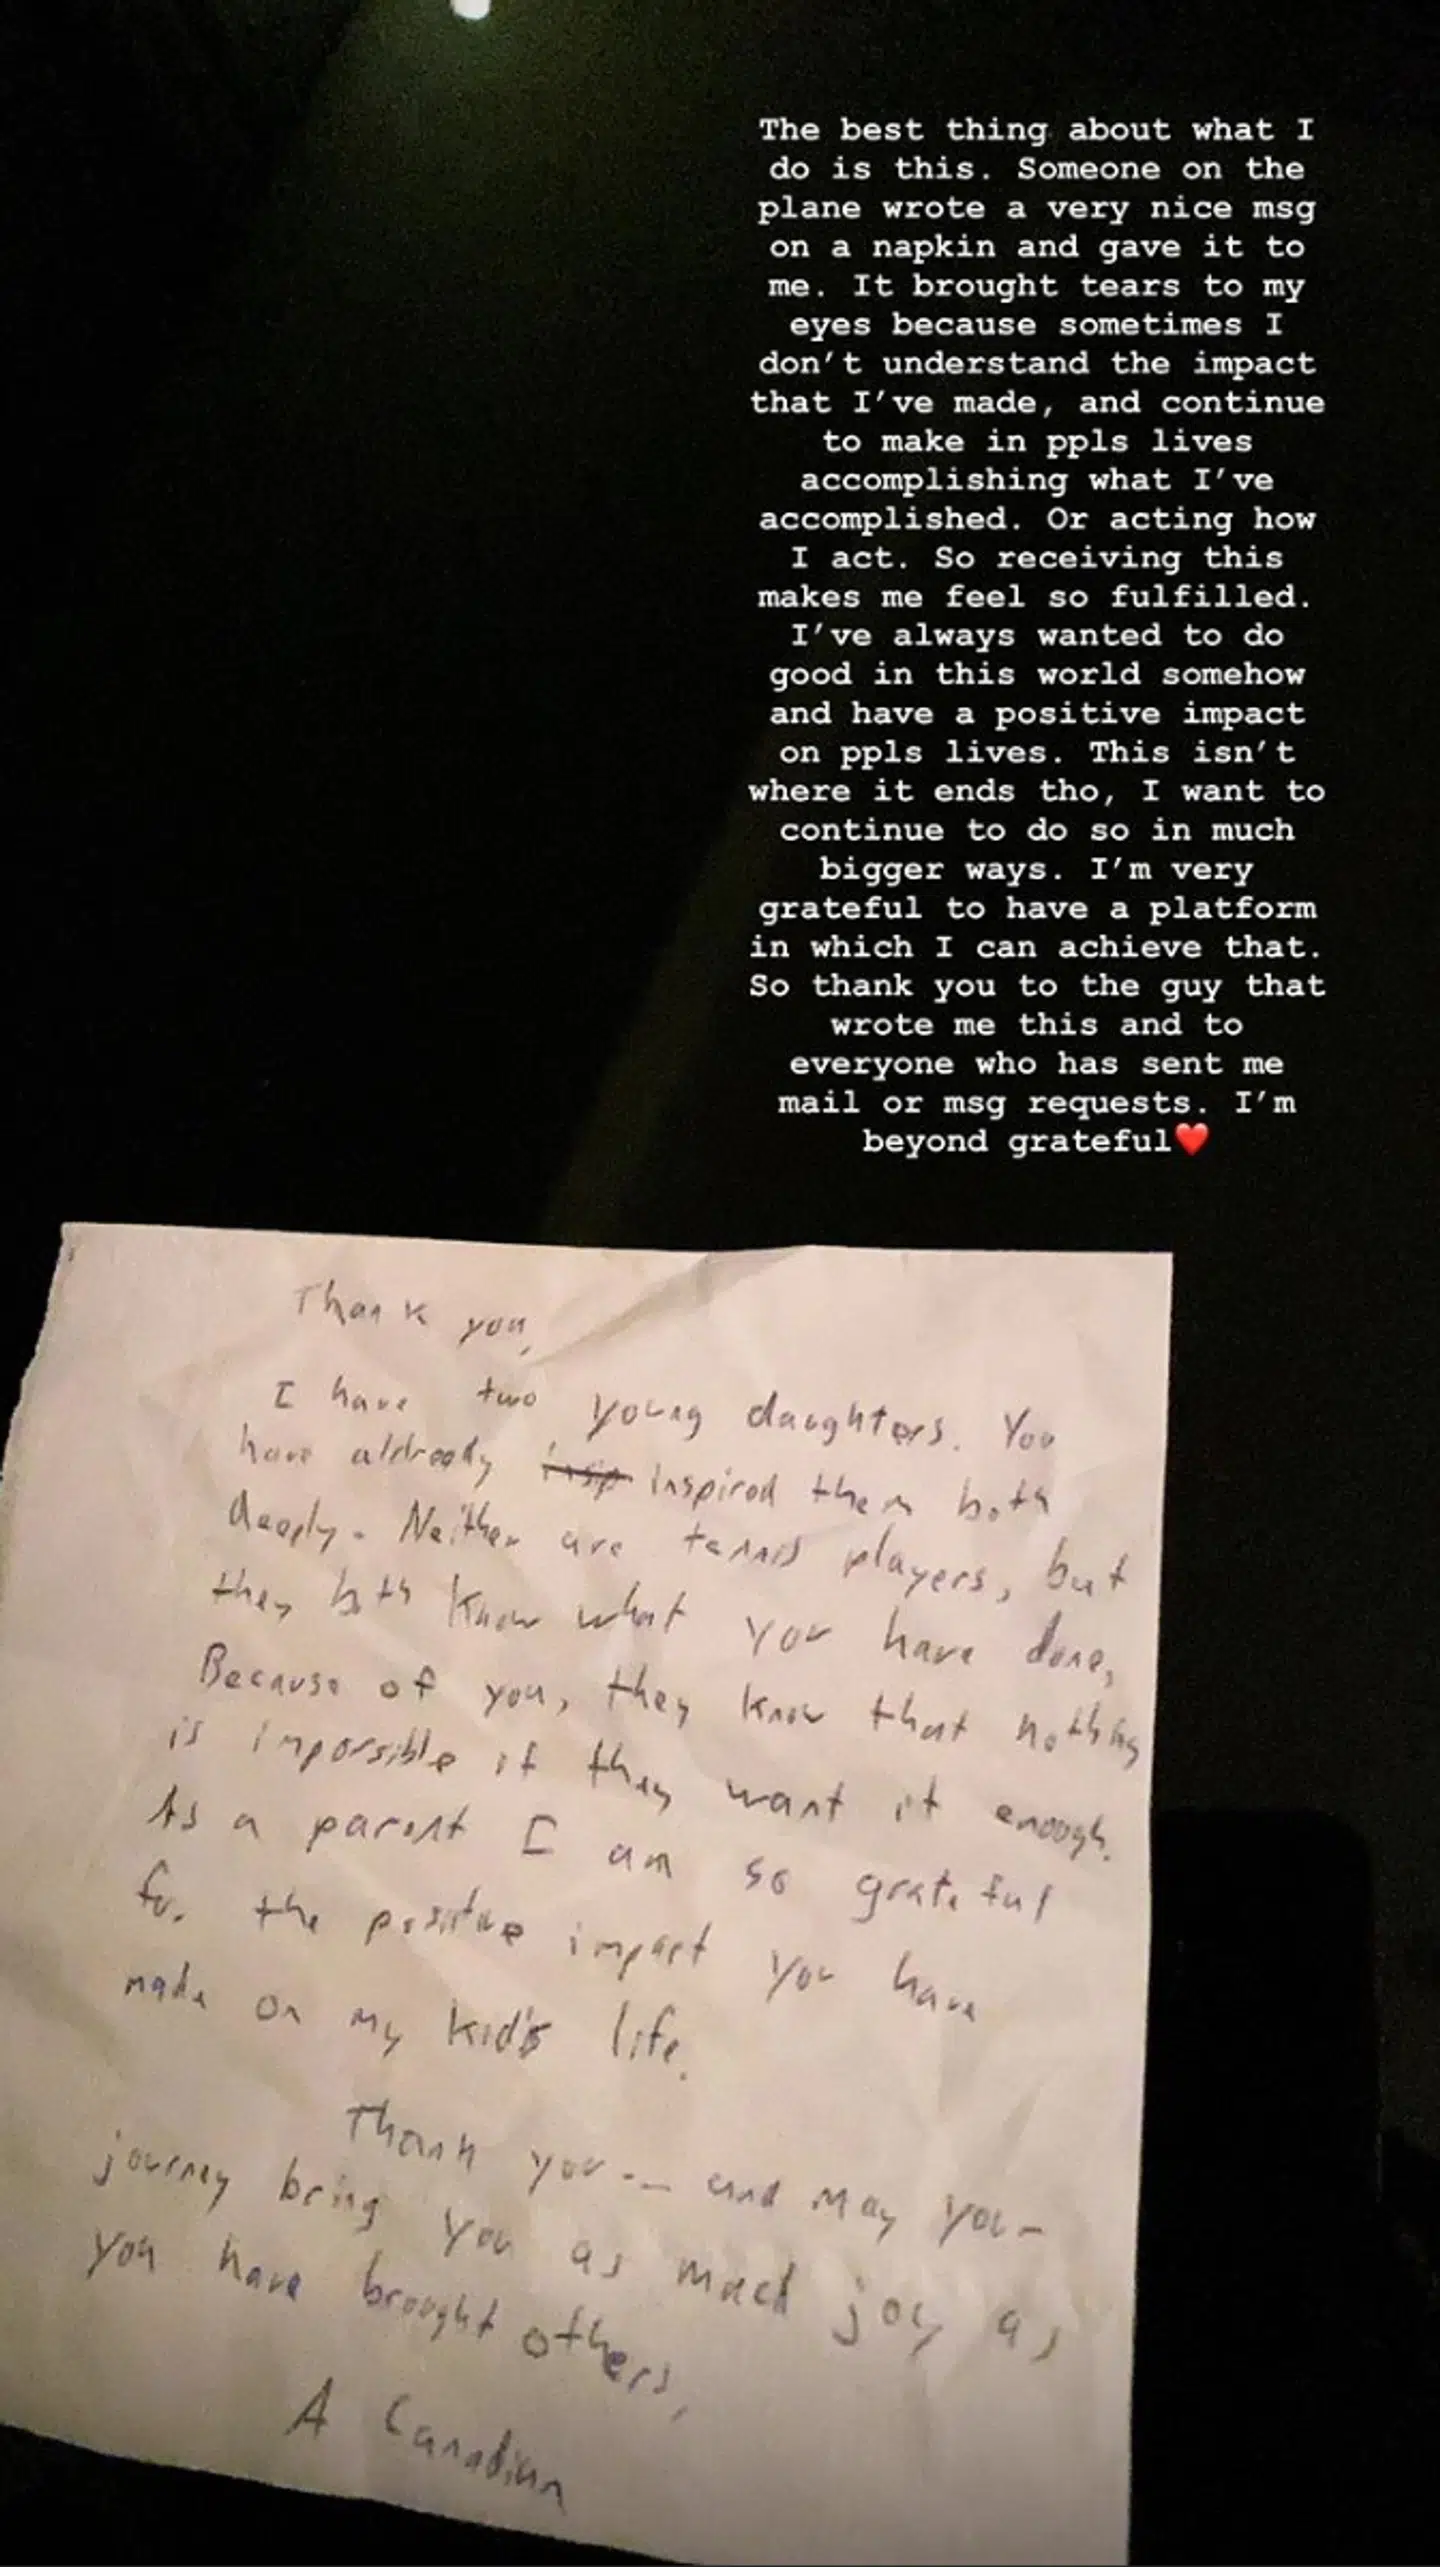 The best thing about what I
do is this. Someone on the
plane wrote a very nice msg
on a napkin and gave it to
me. It brought tears to my
eyes because sometimes I
don't understand the impact
that I've made, and continue
to make in ppls lives
accomplishing what I've
accomplished. Or acting how
I act. So receiving this
makes me feel so fulfilled.
I've always wanted to do
good in this world somehow
and have a positive impact
on ppls lives. This isn't
where it ends tho, I want to
continue to do so in much
bigger ways. I'm very
grateful to have a platform
in which I can achieve that.
So thank you to the guy that
wrote me this and to
everyone who has sent me
mail or msg requests. I'm
beyond grateful❤️
Thank you,
I have two young daughters. You
have aldready insp inspired them both
deeply. Neither are tennis players, but
they both know what you have done,
Because of you, they know that nothing
is impossible if they want it enough.
As a parent I am so grateful
for the positive impact you have
made on my kid's life.
Thank you -- and may your
journey bring you as much joy as
you have brought others,
A Canadian